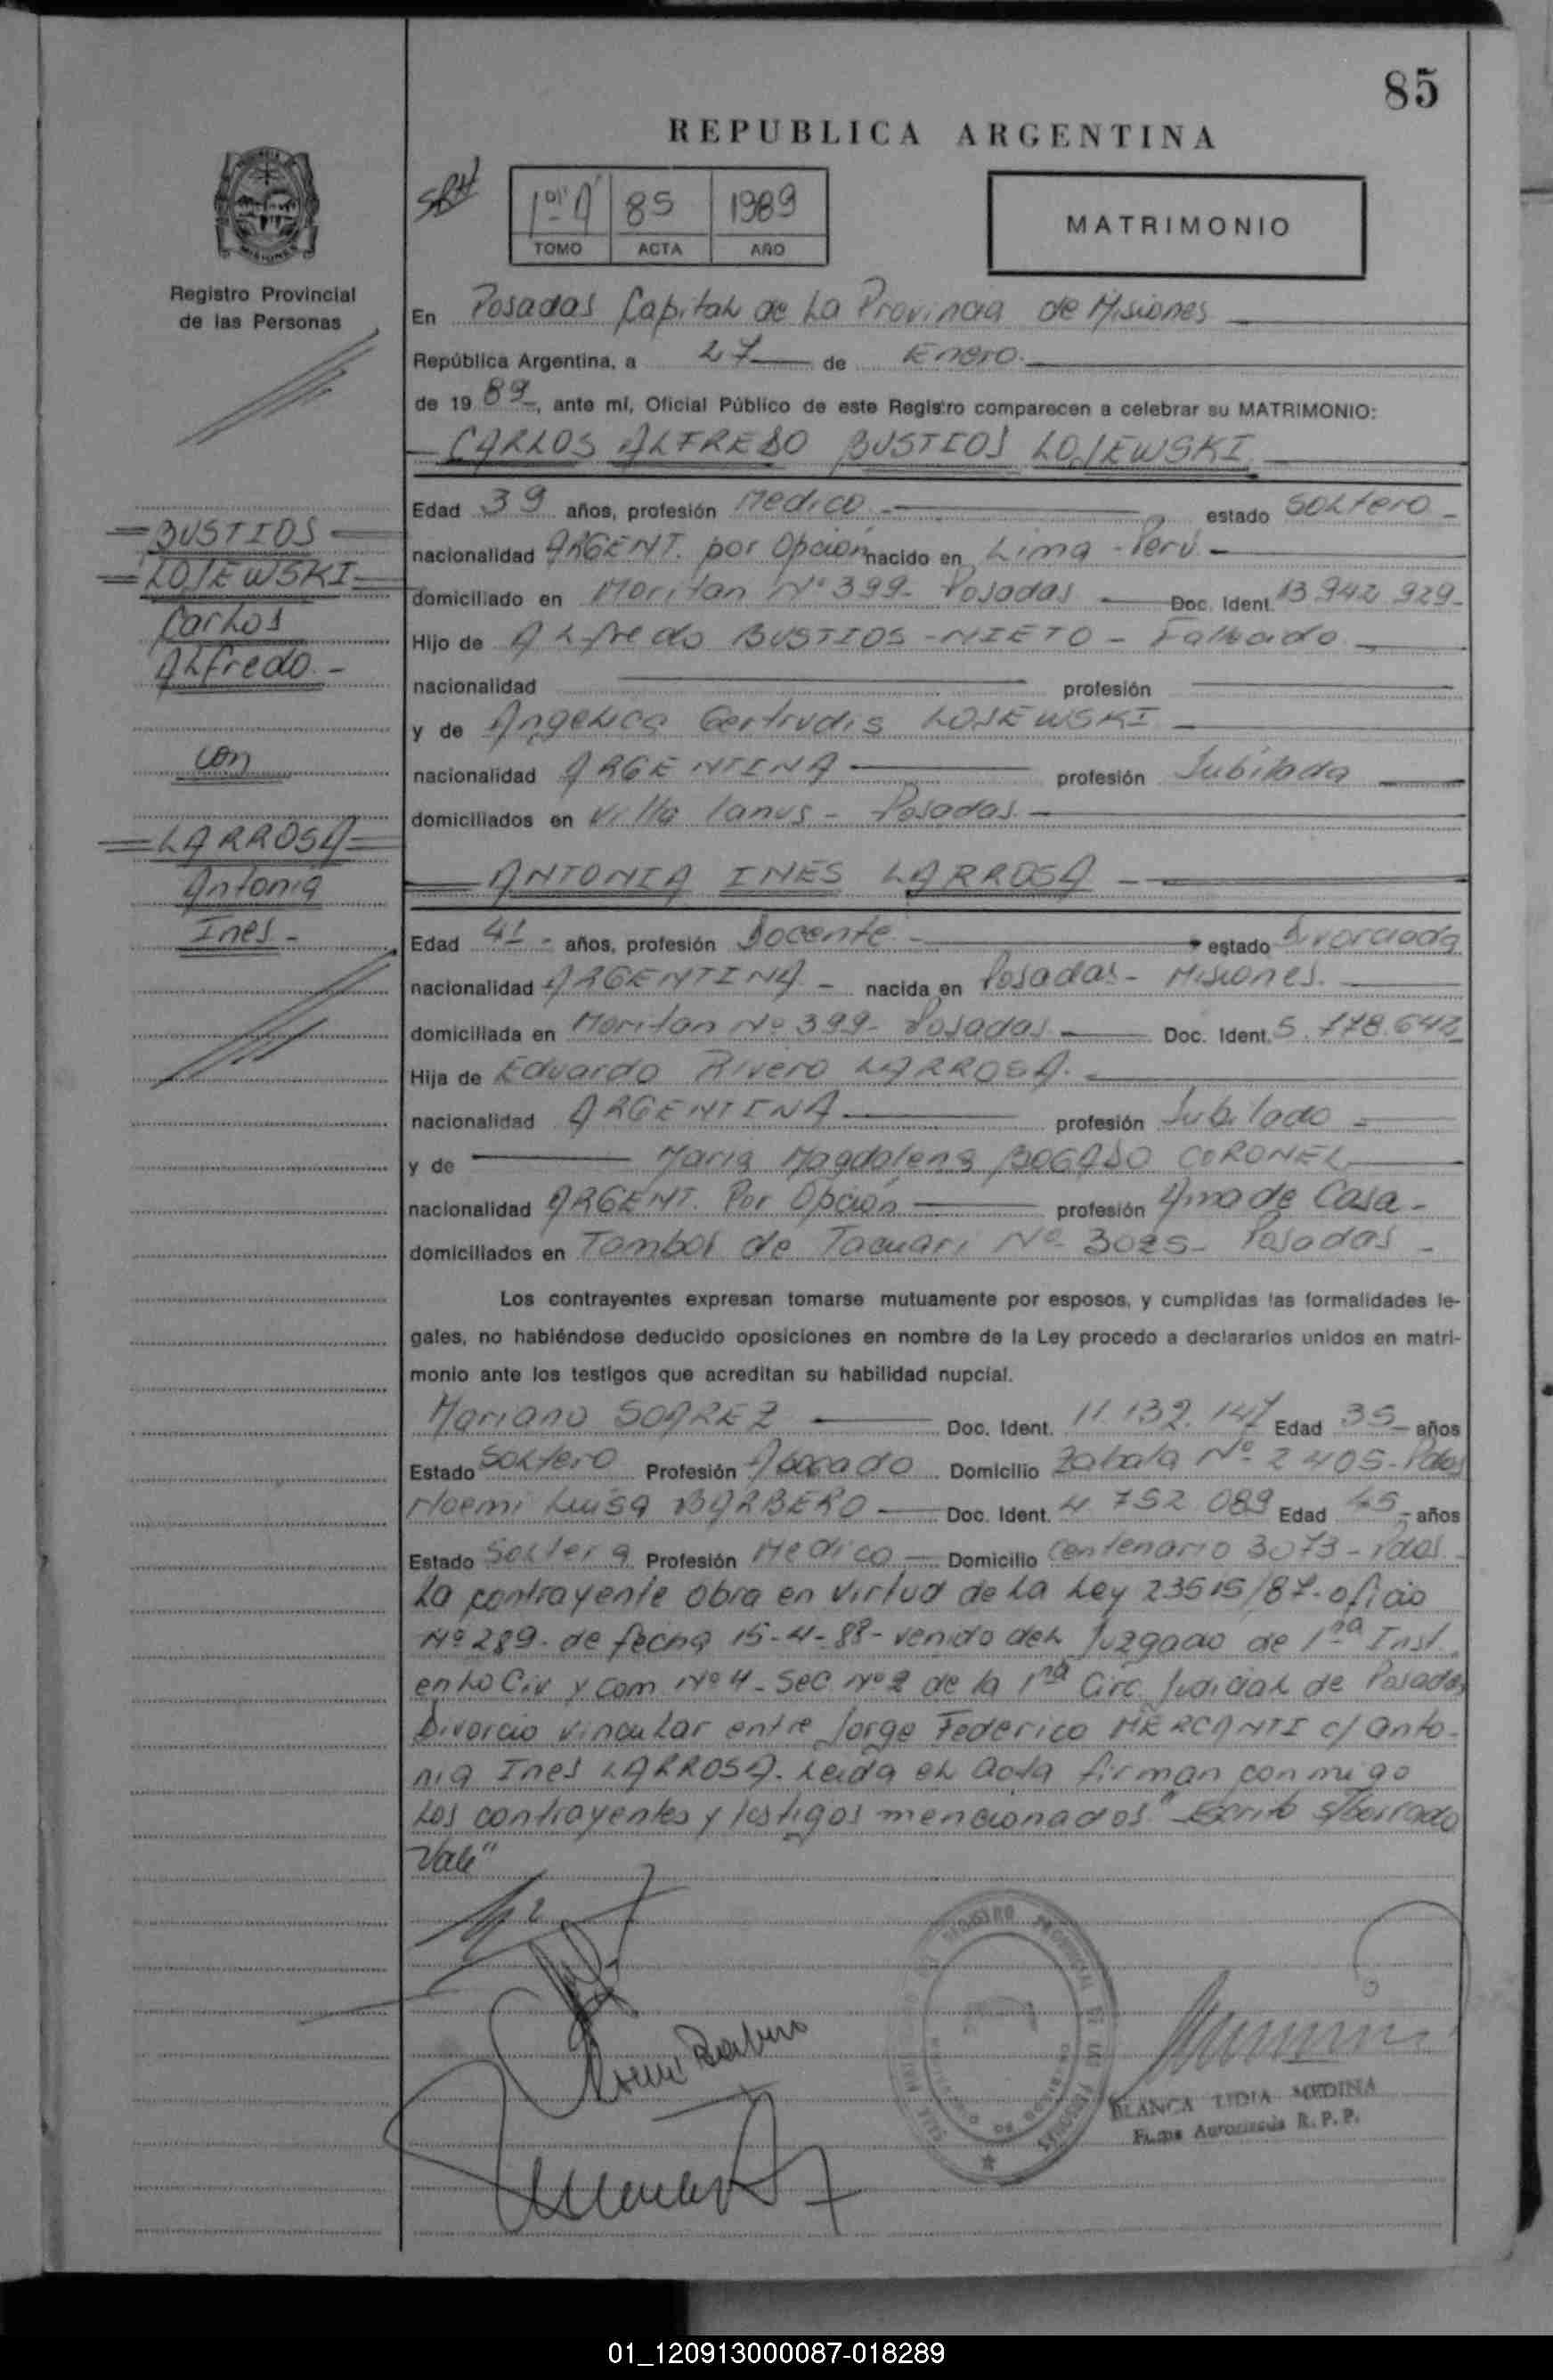 85
REPUBLICA ARGENTINA
1er A 85 1989
TOMO ACTA AÑO
MATRIMONIO
Registro Provincial
de las Personas
En Posadas Capital de La Provincia de Misiones
República Argentina, a 27 de Enero.
de 19 89, ante mí, Oficial Público de este Registro comparecen a celebrar su MATRIMONIO:
CARLOS ALFREDO BUSTIOS LOJEWSKI
Edad 39 años, profesión Medico estado Soltero
BUSTIOS
nacionalidad ARGENT. por Opción nacido en Lima - Perú
LOJEWSKI
domiciliado en Moritan Nº 399- Posadas Doc. Ident. 13.942.929-
Carlos
Hijo de Alfredo BUSTIOS - NIETO - Fallecido
Alfredo.-
nacionalidad profesión
y de Angelica Gertrudis LOJEWSKI
con
nacionalidad ARGENTINA profesión Jubilada
domiciliados en Villa Lanus - Posadas.
LARROSA
Antonia
ANTONIA INES LARROSA
Ines -
Edad 41 - años, profesión Docente estado Divorciada
nacionalidad ARGENTINA - nacida en Posadas - Misiones.
domiciliada en Moritan Nº 399- Posadas Doc. Ident. 5.778.642
Hija de Eduardo Rivero LARROSA.
nacionalidad ARGENTINA profesión Jubilado
y de Maria Magdalena BOGADO CORONEL
nacionalidad ARGENT. Por Opción profesión Ama de Casa -
domiciliados en Tambor de Tacuari Nº 3025- Posadas -
Los contrayentes expresan tomarse mutuamente por esposos, y cumplidas las formalidades le-
gales, no habiéndose deducido oposiciones en nombre de la Ley procedo a declararlos unidos en matri-
monio ante los testigos que acreditan su habilidad nupcial.
Mariano SOAREZ Doc. Ident. 11.132.147 Edad 35 años
Estado Soltero Profesión Abogado Domicilio Zabala Nº 2405- Pdas
Noemi Luisa BARBERO Doc. Ident. 4.752.089 Edad 45 - años
Estado Soltera Profesión Medico Domicilio Centenario 3073 - Pdas.
La contrayente obra en virtud de La Ley 23515/87- oficio
Nº 289- de fecha 15-4-88- venido del Juzgado de 1ra Inst.
en Lo Civ y Com Nº 4 - Sec Nº 2 de la 1ra Circ Judicial de Posadas
Divorcio vincular entre Jorge Federico MERCANTI c/ Anto-
nia Ines LARROSA. Leida el acta firman conmigo
Los contrayentes y testigos mencionados "Escrito s/borrado
Vale"
Noemi Barbero
BLANCA LIDIA MEDINA
R. P. P.
01_120913000087-018289